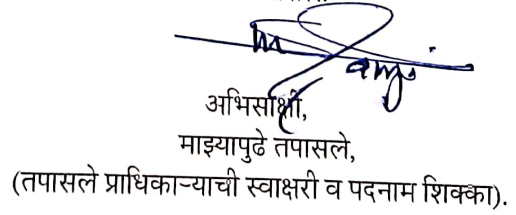 अभिसाक्षी,
माझ्यापुढे तपासले,
(तपासले प्राधिकाऱ्याची स्वाक्षरी व पदनाम शिक्का).